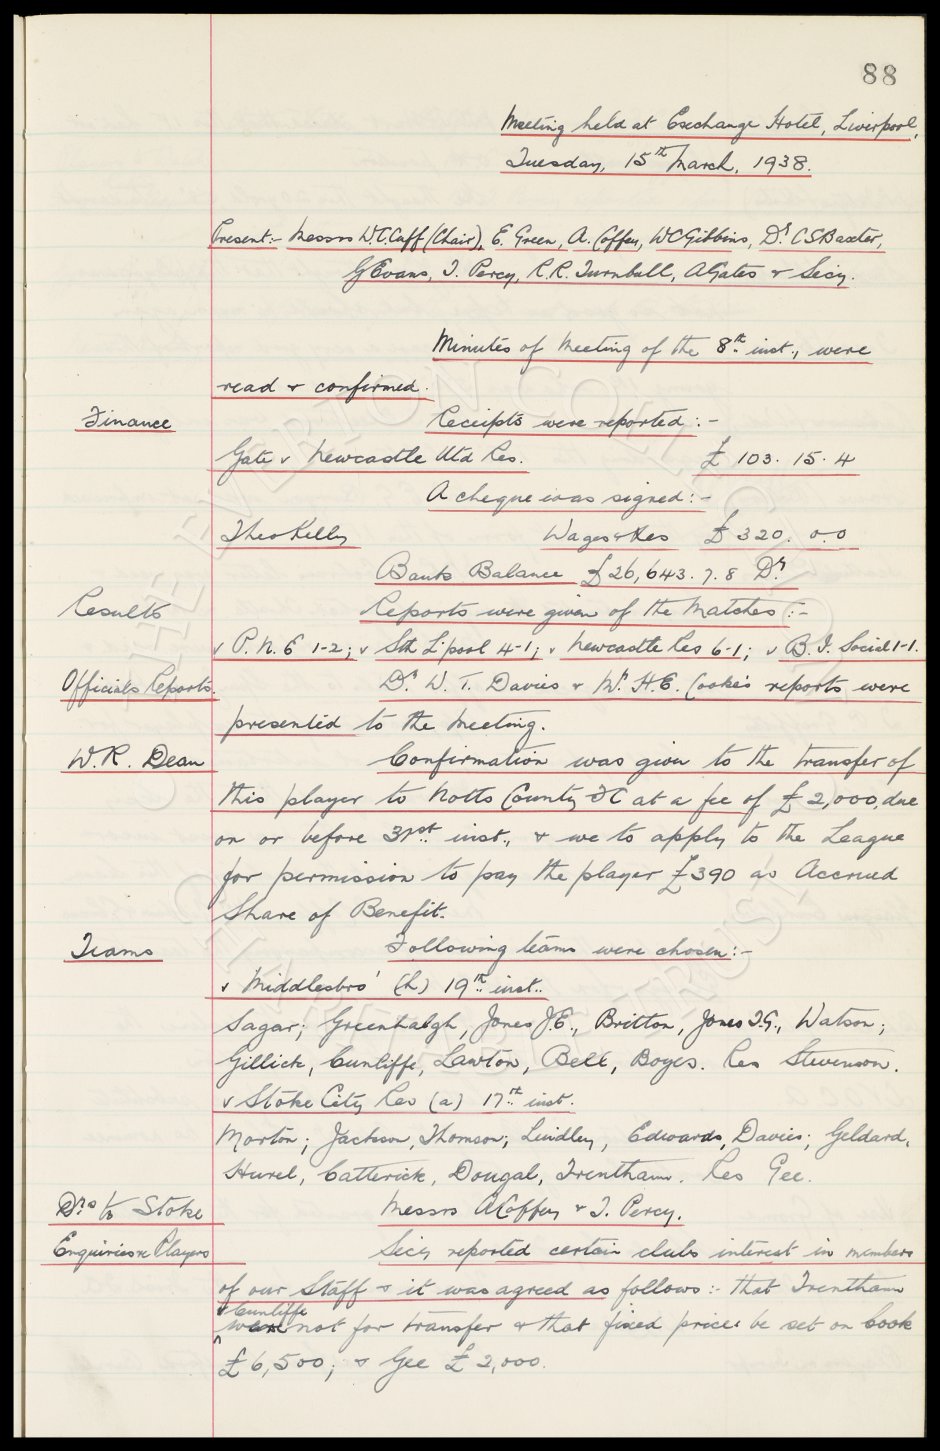 88
Meeting held at Exchange Hotel, Liverpool,
Tuesday, 15th March, 1938.
Present:- Messrs W.C.Cuff (Chair), E. Green, A. Coffey, WC Gibbins, Dr. C S Baxter,
G Evans, T. Percy, R.R. Turnbull, A Gates & Secy.
Minutes of Meeting of the 8th inst., were
read & confirmed.
Finance
Receipts were reported:-
Gate v Newcastle Utd Res. £ 103. 15. 4
A cheque was signed:-
Theo Kelly Wages & Res £ 320. 0.0
Bank Balance £26,643.7.8 Dr
Results Reports were given of the Matches:-
v P.N.E 1-2; v Sth L'pool 4-1; v Newcastle Res 6-1; v B.I. Social 1-1.
Officials Reports. Dr. W. T. Davies & Mr. H.E. Cooke's reports were
presented to the Meeting.
W.R. Dean Confirmation was given to the transfer of
this player to Notts County FC at a fee of £2,000, due
on or before 31st inst., & we to apply to the League
for permission to pay the player £390 as Accrued
Share of Benefit.
Teams Following teams were chosen:-
v Middlesbro' (h) 19th inst.
Sagar; Greenhalgh, Jones J.E., Britton, Jones T.G., Watson;
Gillick, Cunliffe, Lawton, Bell, Boyes. Res Stevenson.
v Stoke City Res (a) 17th inst.
Morton; Jackson, Thomson; Lindley, Edwards, Davies; Geldard,
Hurel, Catterick, Dougal, Trentham. Res Gee.
Drs to Stoke Messrs A Coffey & T. Percy.
Enquiries re Players Secy reported certain clubs interest in members
of our Staff & it was agreed as follows:- that Trentham
& Cunliffe
were not for transfer & that fixed prices be set on Cook
£6,500; & Gee £2,000.
THE EVERTON COLLECTION
CHARITABLE TRUST